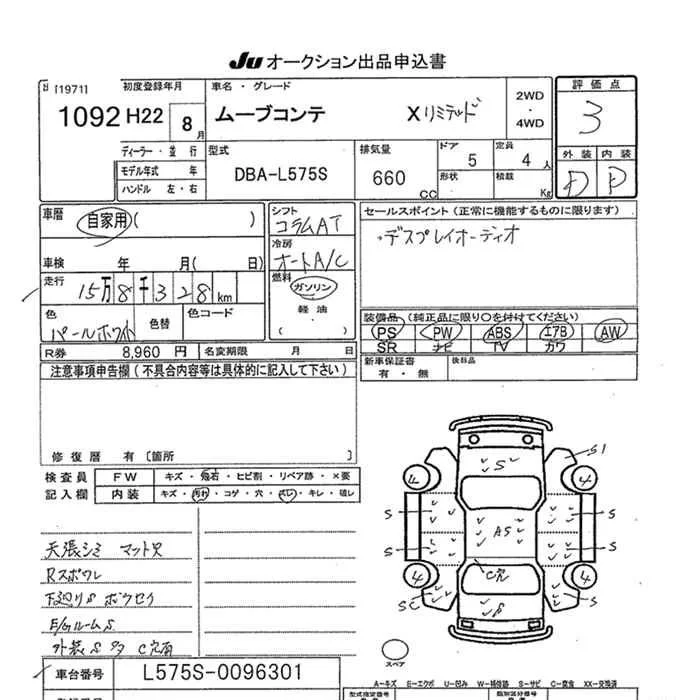 Ju オークション出品申込書
[1971] 初度登録年月 車名・グレード 評価点
1092 H22 8月 ムーブコンテ Xリミテッド 2WD・4WD 3
ディーラー・並行 型式 排気量 ドア 定員 外装 内装
モデル年式 年 DBA-L575S 660 CC 5 4人 D D
ハンドル 左・右 形状 積載 Kg
車歴 自家用( ) シフト コラムAT セールスポイント(正常に機能するものに限ります)
冷房 オートA/C ・デスプレイオーディオ
車検 年 月( 日) 燃料 ガソリン
走行 15万8千328km 軽油
色 パールホワイト 色替 色コード ( ) 装備品(純正品に限り○を付けてください)
PS PW ABS エアB AW
R券 8,960 円 名変期限 月 日 SR ナビ TV カワ
注意事項申告欄(不具合内容等は具体的に記入して下さい) 新車保証書 後日品
有・無
修復歴 有〔箇所 〕
検査員 FW キズ・飛石・ヒビ割・リペア跡・×要
記入欄 内装 キズ・汚れ・コゲ・穴・スレ・キレ・破レ
S S1
4 4
S S
AS
S S
C穴
4 4
SC S S
天張シミ マット穴
Rスポワレ
下廻りS ボウセイ
E/GルームS
外装S多 C穴有
スペア
車台番号 L575S-0096301
A-キズ E-エクボ U-凹み W-補修跡 S-サビ C-腐食 XX-交換済
登録番号 型式指定番号 類別区分番号